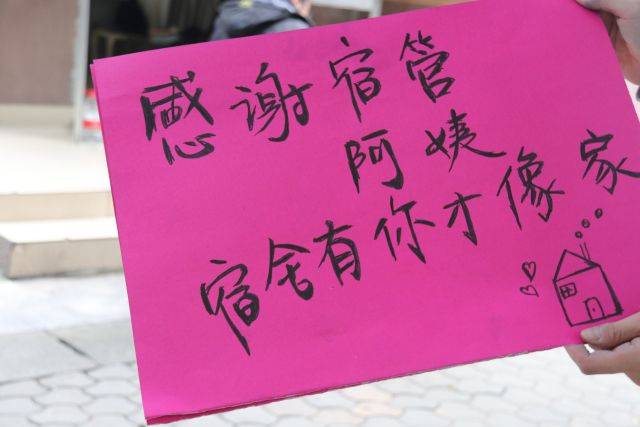 感谢宿管
阿姨
宿舍有你才像家